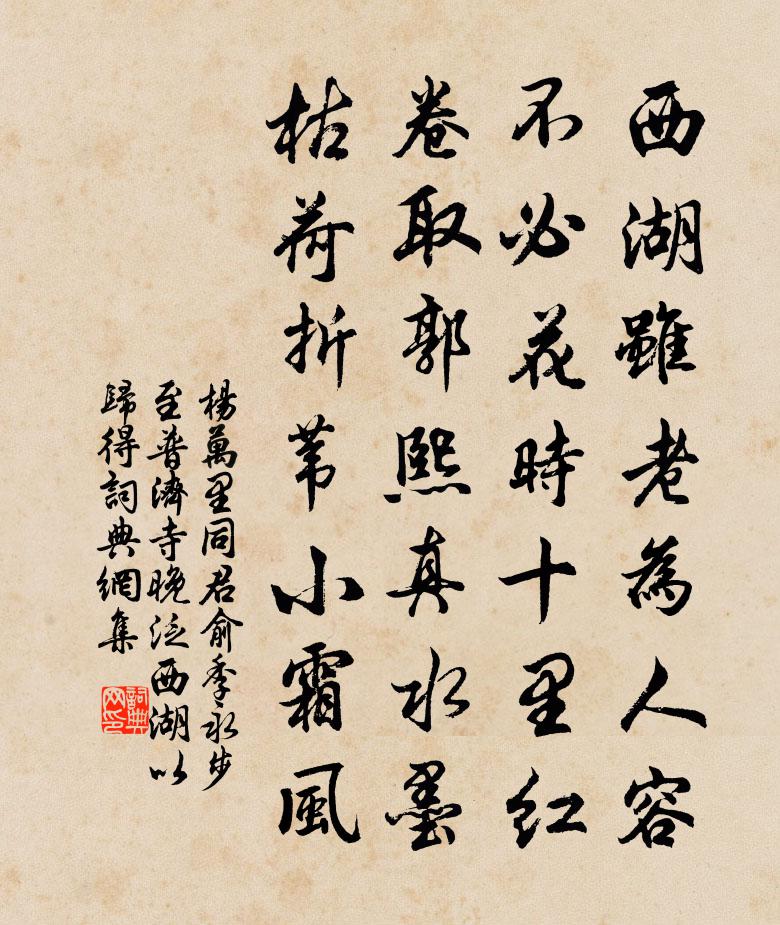 西湖雖老為人容
不必花時十里紅
卷取郭熙真水墨
枯荷折葦小霜風
楊萬里同君俞季永步
至普濟寺晚泛西湖以
歸得詞典網集
詞典網印